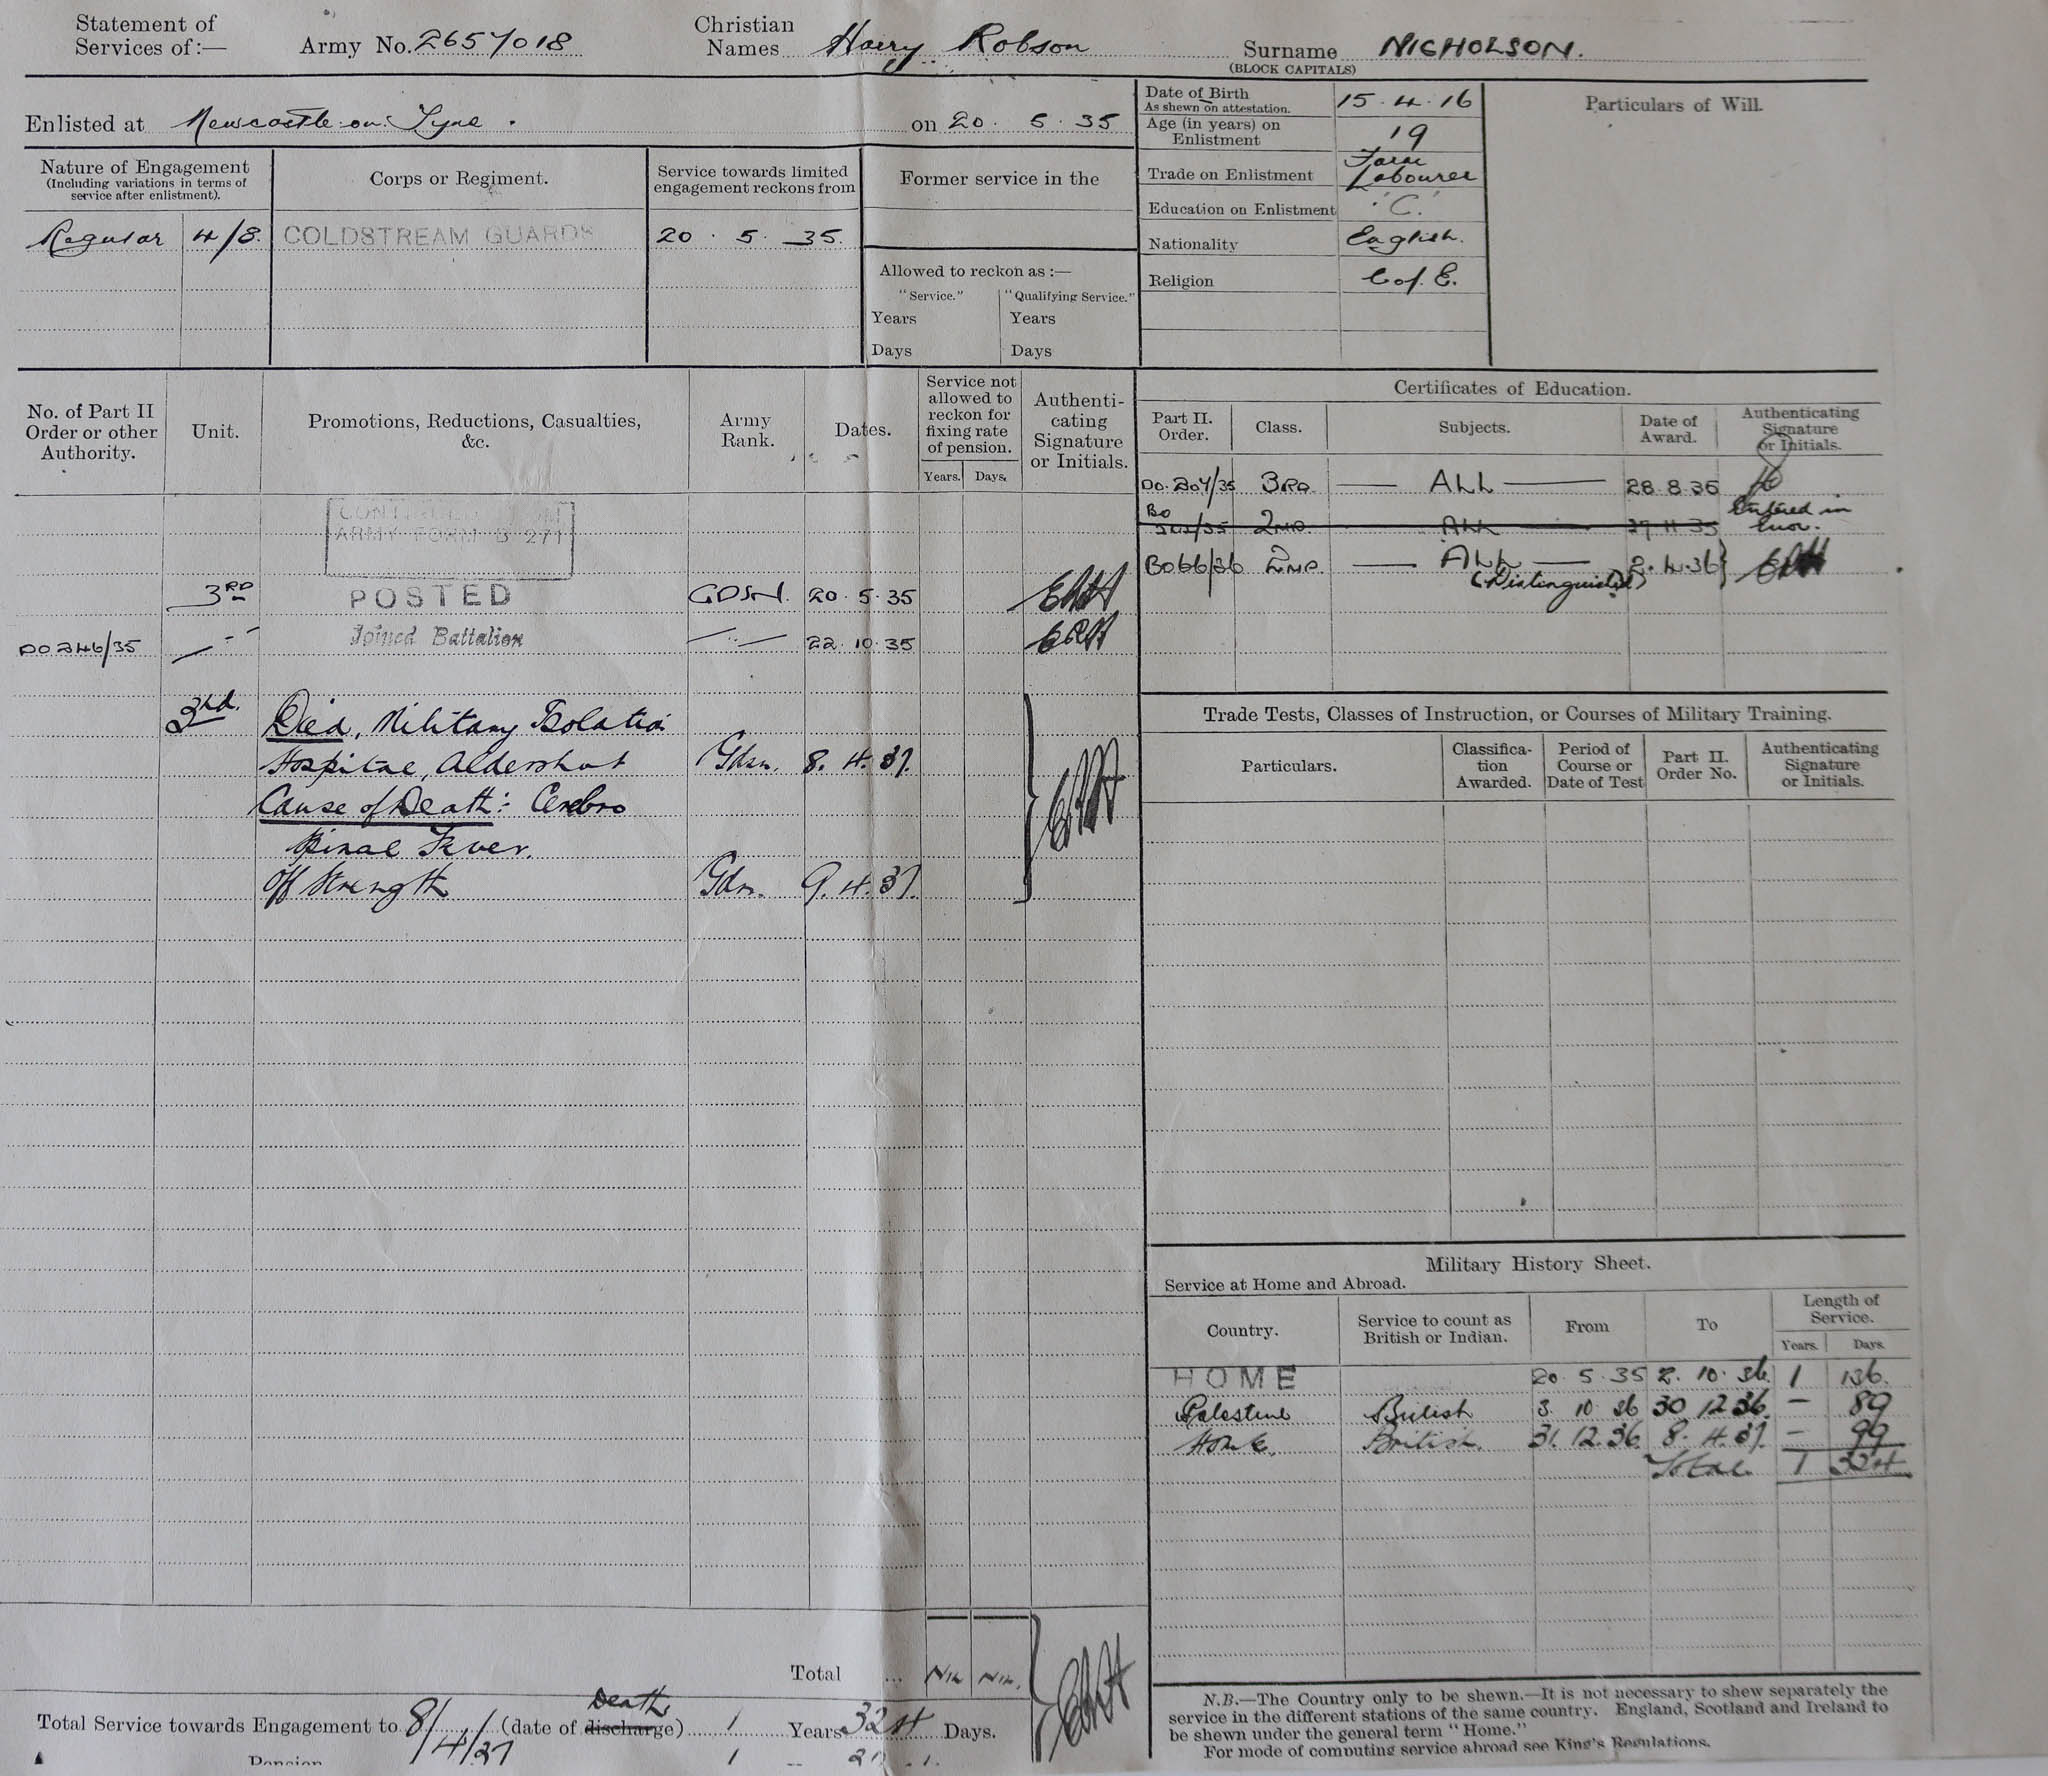 Statement of Services of:— Army No. 2657018 Christian Names Harry Robson Surname NICHOLSON.
(BLOCK CAPITALS)
Enlisted at Newcastle-on-Tyne. on 20. 5. 35
Date of Birth As shewn on attestation. 15.4.16
Age (in years) on Enlistment 19
Trade on Enlistment Farm Labourer
Education on Enlistment 'C.'
Nationality English.
Religion C of. E.
Particulars of Will.
Nature of Engagement (Including variations in terms of service after enlistment).
Corps or Regiment.
Service towards limited engagement reckons from
Former service in the
Regular 4/8. COLDSTREAM GUARDS 20. 5. 35.
Allowed to reckon as :—
"Service." "Qualifying Service."
Years Years
Days Days
No. of Part II Order or other Authority.
Unit.
Promotions, Reductions, Casualties, &c.
Army Rank.
Dates.
Service not allowed to reckon for fixing rate of pension.
Years. Days.
Authenticating Signature or Initials.
CONTINUED FROM
ARMY FORM B 271
3RD POSTED GDSN. 20.5.35
DO 246/35 Joined Battalion 22.10.35
Died, Military Isolation
Hospital, Aldershot Gdsn. 8. 4. 37.
Cause of Death:- Cerebro
Spinal Fever.
Off Strength Gdsn. 9. 4. 37.
Total ... Nil Nil.
Total Service towards Engagement to 8/4/37 (date of discharge) Death 1 Years 324 Days.
Pension 1
Certificates of Education.
Part II. Order. Class. Subjects. Date of Award. Authenticating Signature or Initials.
DO. 207/35 3RD — ALL — 28.8.35
2ND. ALL 27.11.35 Entered in Error.
BO 66/36 2ND. — ALL — 2.4.36
(Distinguished)
Trade Tests, Classes of Instruction, or Courses of Military Training.
Particulars. Classification Awarded. Period of Course or Date of Test Part II. Order No. Authenticating Signature or Initials.
Military History Sheet.
Service at Home and Abroad.
Country. Service to count as British or Indian. From To Length of Service.
Years. Days.
HOME 20.5.35 2.10.36. 1 136.
Palestine British 3.10.36 30.12.36. — 89
Home. British. 31.12.36. 8.4.37. — 99
Total 1 324
N.B.—The Country only to be shewn.—It is not necessary to shew separately the
service in the different stations of the same country. England, Scotland and Ireland to
be shewn under the general term "Home."
For mode of computing service abroad see King's Regulations.